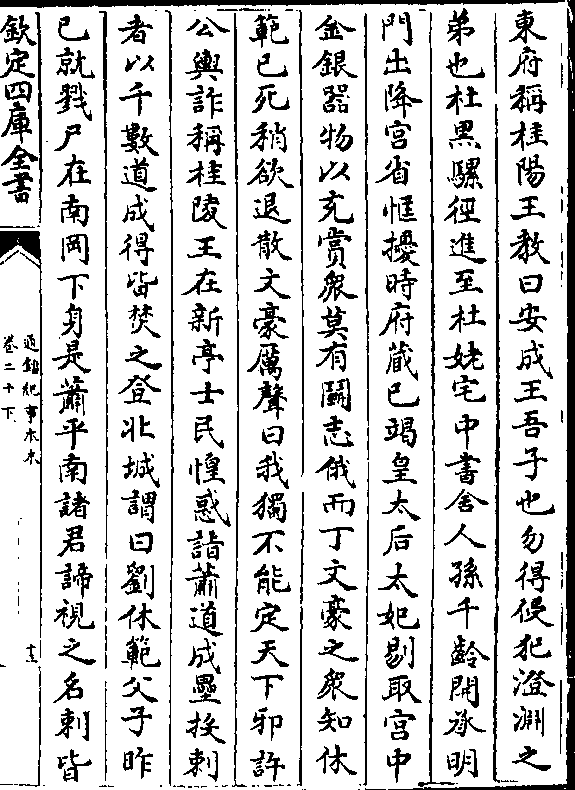 東府稱桂陽王教曰安成王吾子也勿得侵犯澄淵之
弟也杜黑騾徑進至杜姥宅中書舍人孫千齡開承明
門出降宮省恇擾時府藏已竭皇太后太妃剔取宮中
金銀器物以充賞衆莫有鬭志俄而丁文豪之衆知休
範已死稍欲退散文豪厲聲曰我獨不能定天下邪許
公輿詐稱桂陵王在新亭士民惶惑詣蕭道成壘投刺
者以千數道成得皆焚之登北城謂曰劉休範父子昨
已就戮尸在南岡下身是蕭平南諸君諦視之名刺皆
欽定四庫全書
通鑑紀事本末
卷二十下